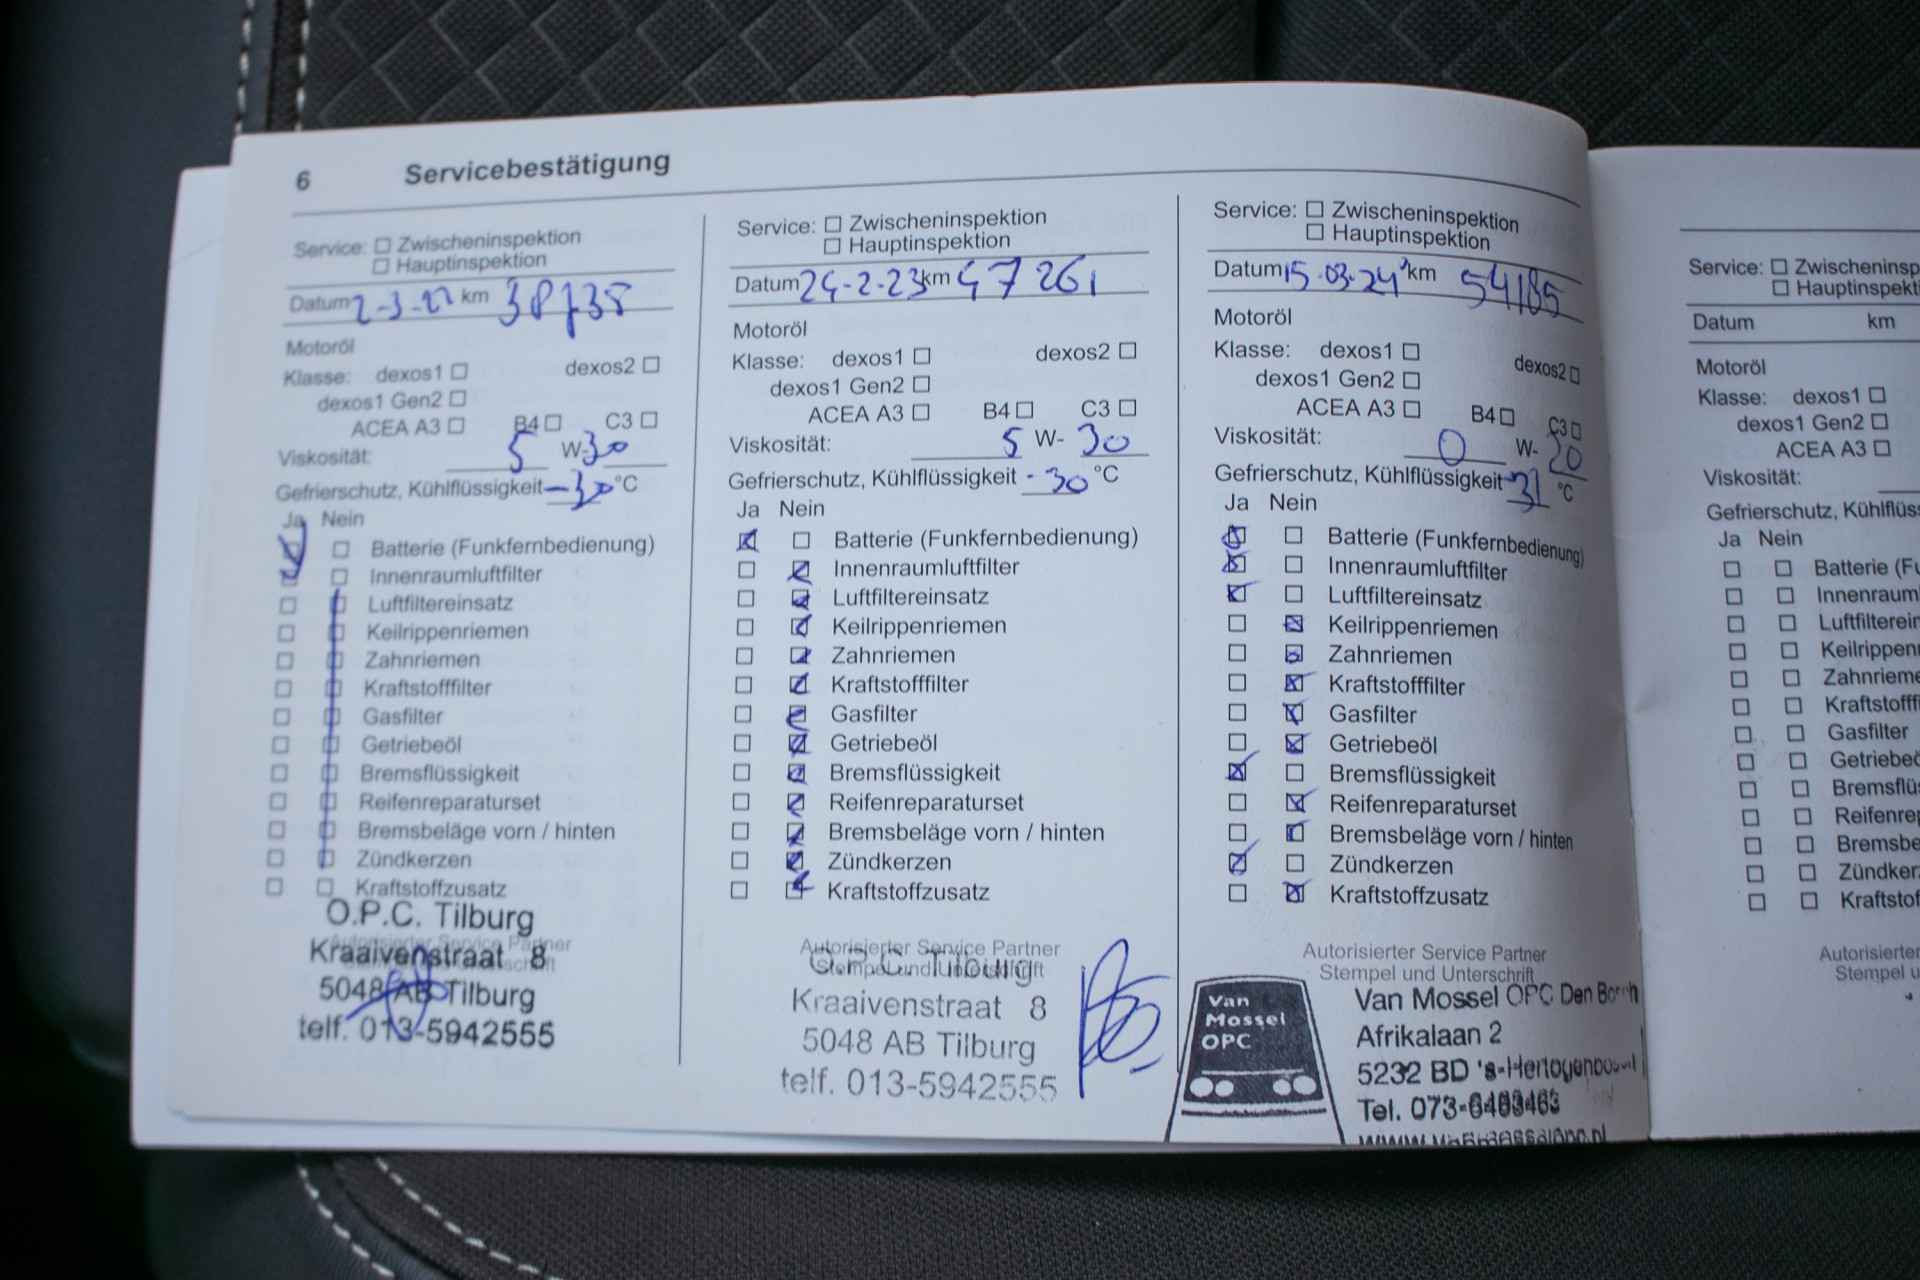 6 Servicebestätigung
Service: Zwischeninspektion
Hauptinspektion
Datum 2-3-22 km
Motoröl
Klasse: dexos1 dexos2
dexos1 Gen2
ACEA A3 B4 C3
Viskosität: 5 W-30
Gefrierschutz, Kühlflüssigkeit -30 °C
Ja Nein
Batterie (Funkfernbedienung)
Innenraumluftfilter
Luftfiltereinsatz
Keilrippenriemen
Zahnriemen
Kraftstofffilter
Gasfilter
Getriebeöl
Bremsflüssigkeit
Reifenreparaturset
Bremsbeläge vorn / hinten
Zündkerzen
Kraftstoffzusatz
O.P.C. Tilburg
Autorisierter Service Partner
Kraaivenstraat 8
5048 AB Tilburg
telf. 013-5942555
Service: Zwischeninspektion
Hauptinspektion
Datum 24-2-23 km 47261
Motoröl
Klasse: dexos1 dexos2
dexos1 Gen2
ACEA A3 B4 C3
Viskosität: 5 W- 30
Gefrierschutz, Kühlflüssigkeit -30 °C
Ja Nein
Batterie (Funkfernbedienung)
Innenraumluftfilter
Luftfiltereinsatz
Keilrippenriemen
Zahnriemen
Kraftstofffilter
Gasfilter
Getriebeöl
Bremsflüssigkeit
Reifenreparaturset
Bremsbeläge vorn / hinten
Zündkerzen
Kraftstoffzusatz
Autorisierter Service Partner
Stempel und Unterschrift
O.P.C. Tilburg
Kraaivenstraat 8
5048 AB Tilburg
telf. 013-5942555
Service: Zwischeninspektion
Hauptinspektion
Datum 15-03-24 km 54185
Motoröl
Klasse: dexos1 dexos2
dexos1 Gen2
ACEA A3 B4 C3
Viskosität: 0 W- 20
Gefrierschutz, Kühlflüssigkeit -31 °C
Ja Nein
Batterie (Funkfernbedienung)
Innenraumluftfilter
Luftfiltereinsatz
Keilrippenriemen
Zahnriemen
Kraftstofffilter
Gasfilter
Getriebeöl
Bremsflüssigkeit
Reifenreparaturset
Bremsbeläge vorn / hinten
Zündkerzen
Kraftstoffzusatz
Autorisierter Service Partner
Stempel und Unterschrift
Van
Mossel
OPC
Van Mossel OPC Den Bosch
Afrikalaan 2
5232 BD 's-Hertogenbosch
Tel.
Service: Zwischeninsp
Hauptinspekti
Datum km
Motoröl
Klasse: dexos1
dexos1 Gen2
ACEA A3
Viskosität:
Gefrierschutz, Kühlflüss
Ja Nein
Batterie (Fu
Innenraum
Luftfilterein
Keilrippen
Zahnrieme
Kraftstofff
Gasfilter
Getriebeö
Bremsflüs
Reifenrep
Bremsbe
Zündkerz
Kraftstof
Autorisierter
Stempel u